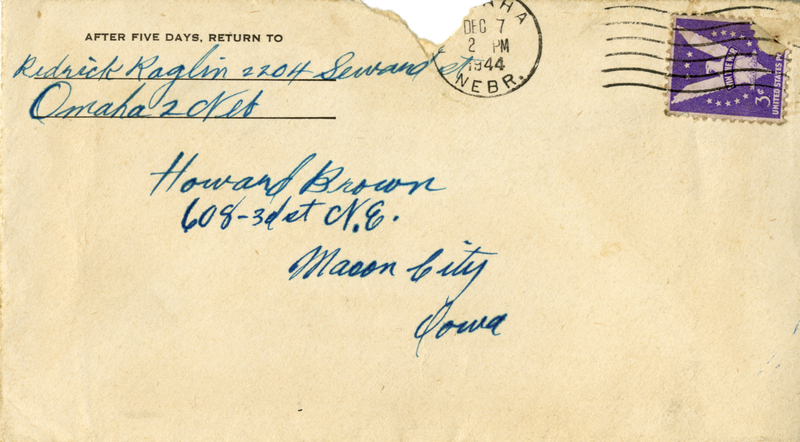 AFTER FIVE DAYS, RETURN TO
Redrick Raglin 2204 Seward st
Omaha 2 Neb
AHA
DEC 7
2 PM
1944
NEBR.
WIN THE WAR
3¢
UNITED STATES PO
Howard Brown
608-3d st N.E.
Mason City
Iowa